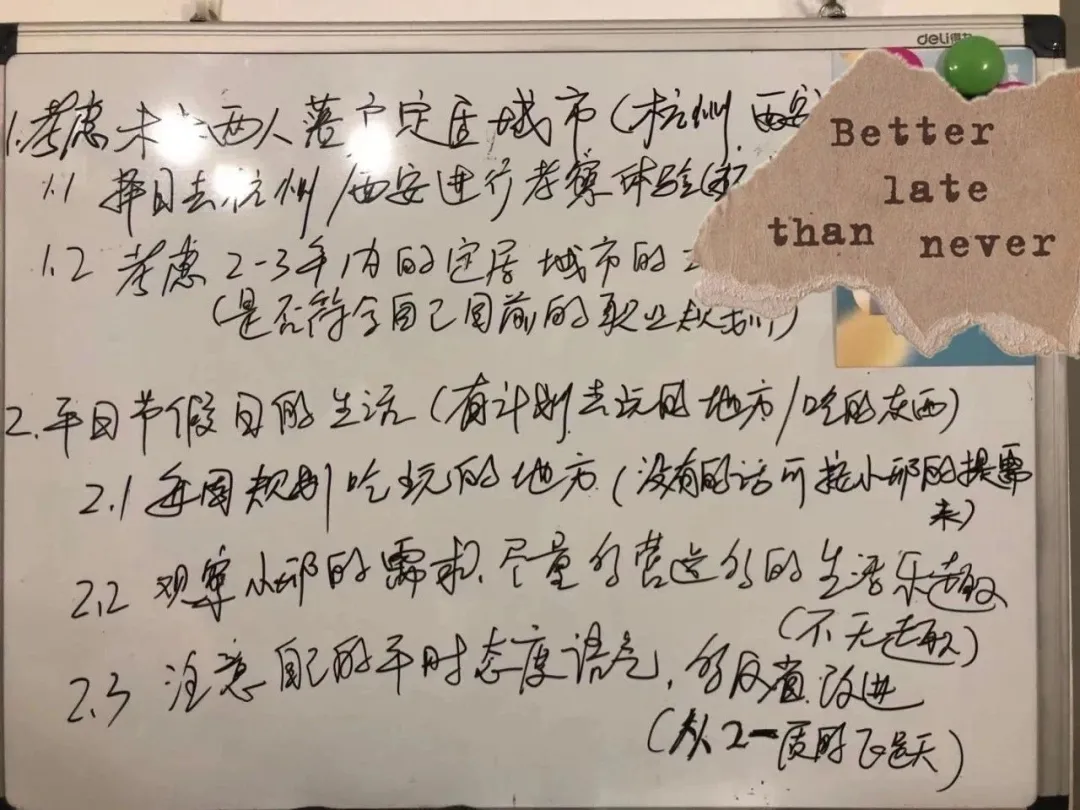 deli得力
1.考虑未来两人落户定居城市(杭州 西安
Better
late
than never
1.1 择日去杭州/西安进行考察体验(
1.2 考虑2-3年内的定居城市的
(是否符合自己目前的职业规划)
2.平日节假日的生活(有计划去玩的地方/吃的东西)
2.1 每周规划吃玩的地方(没有的话可按小邢的提需
来)
2.2 观察小邢的需求,尽量多营造多的生活乐趣
(不无趣)
2.3 注意自己的平时态度语气,多反省改进
(从2一质的飞跃)